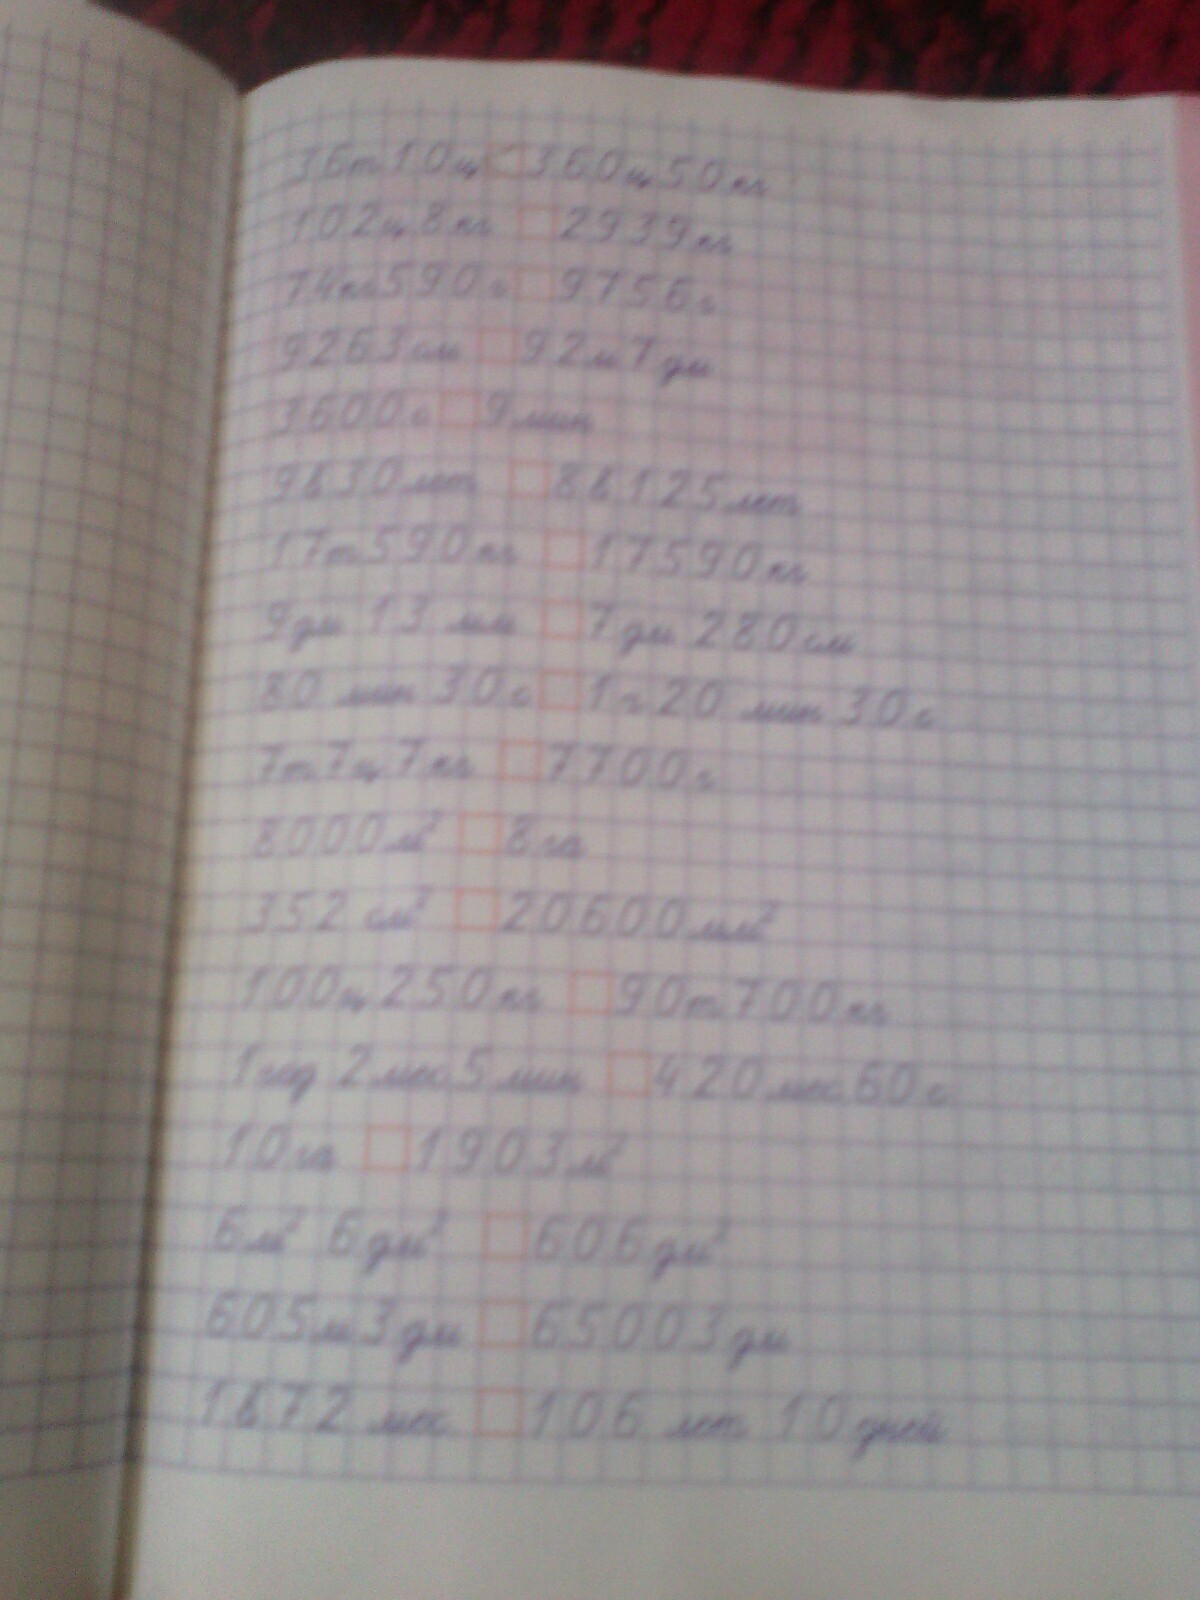 36т10ц < 360ц50кг
102ц8кг □ 2939кг
74кг590г □ 9756г
9263см □ 92м7дм
3600с □ 9мин
9в30лет □ 8в125лет
17т590кг □ 17590кг
9дм 13 мм □ 7дм 280см
80 мин 30с □ 1ч20 мин 30с
7т7ц7кг □ 7700г
8000м² □ 8га
352 см² □ 20600мм²
100ц250кг □ 90т700кг
1год 2мес5мин □ 420мес60с
10га □ 1903м²
6м² 6дм² □ 606дм²
605м3дм □ 65003дм
1в72 мес □ 106 лет 10дней